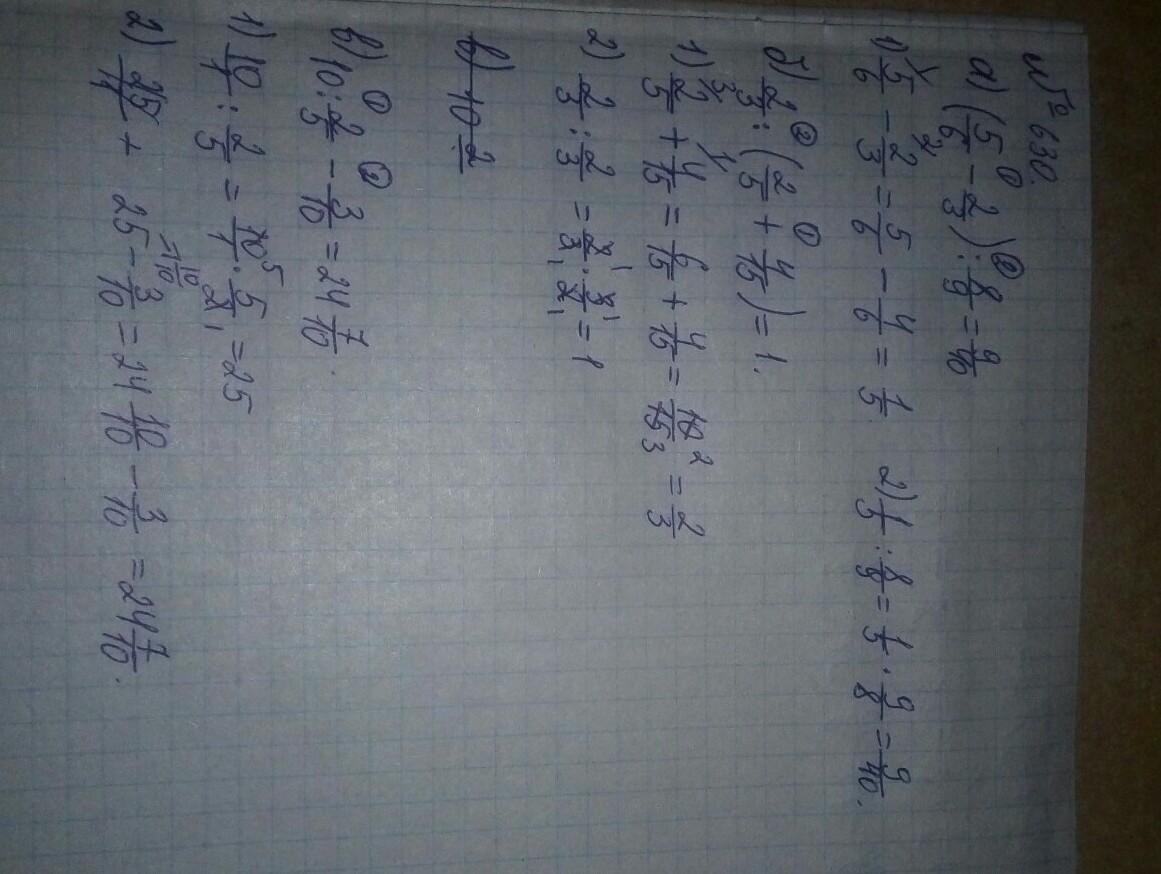 № 630.
а) (5/6 − 2/3) : 8/9 = 9/40
1) 5/6 − 2/3 = 5/6 − 4/6 = 1/5   2) 1/5 : 8/9 = 1/5 · 9/8 = 9/40.
б) 2/3 : (2/5 + 4/15) = 1.
1) 2/5 + 4/15 = 6/15 + 4/15 = 10/15 = 2/3
2) 2/3 : 2/3 = 2/3 · 3/2 = 1
в) 10 2/
в) 10 : 2/5 − 3/10 = 24 7/10.
1) 10/1 : 2/5 = 10/1 · 5/2 = 25
2) 25/1 + 25 − 3/10 = 24 10/10 − 3/10 = 24 7/10.